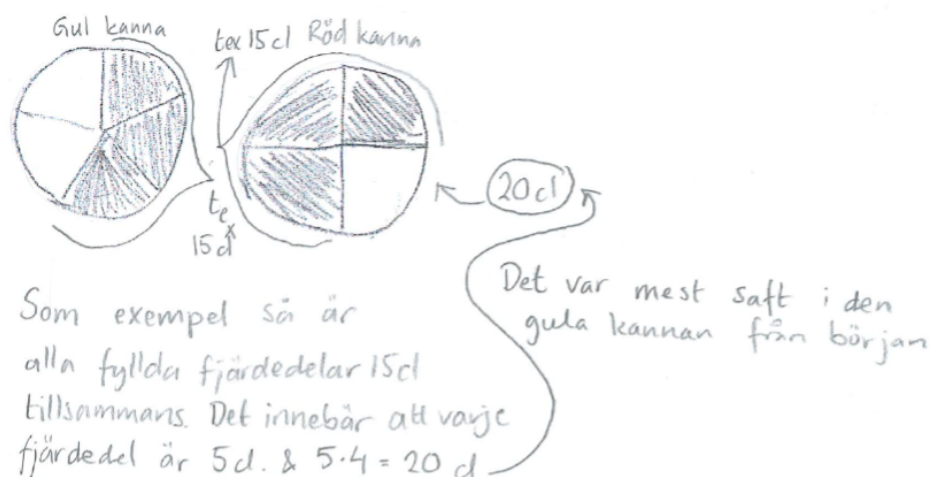 Gul kanna
tex 15cl Röd kanna
tex
15cl
20cl
Det var mest saft i den
gula kannan från början
Som exempel så är
alla fyllda fjärdedelar 15cl
tillsammans. Det innebär att varje
fjärdedel är 5cl. & 5·4 = 20 cl